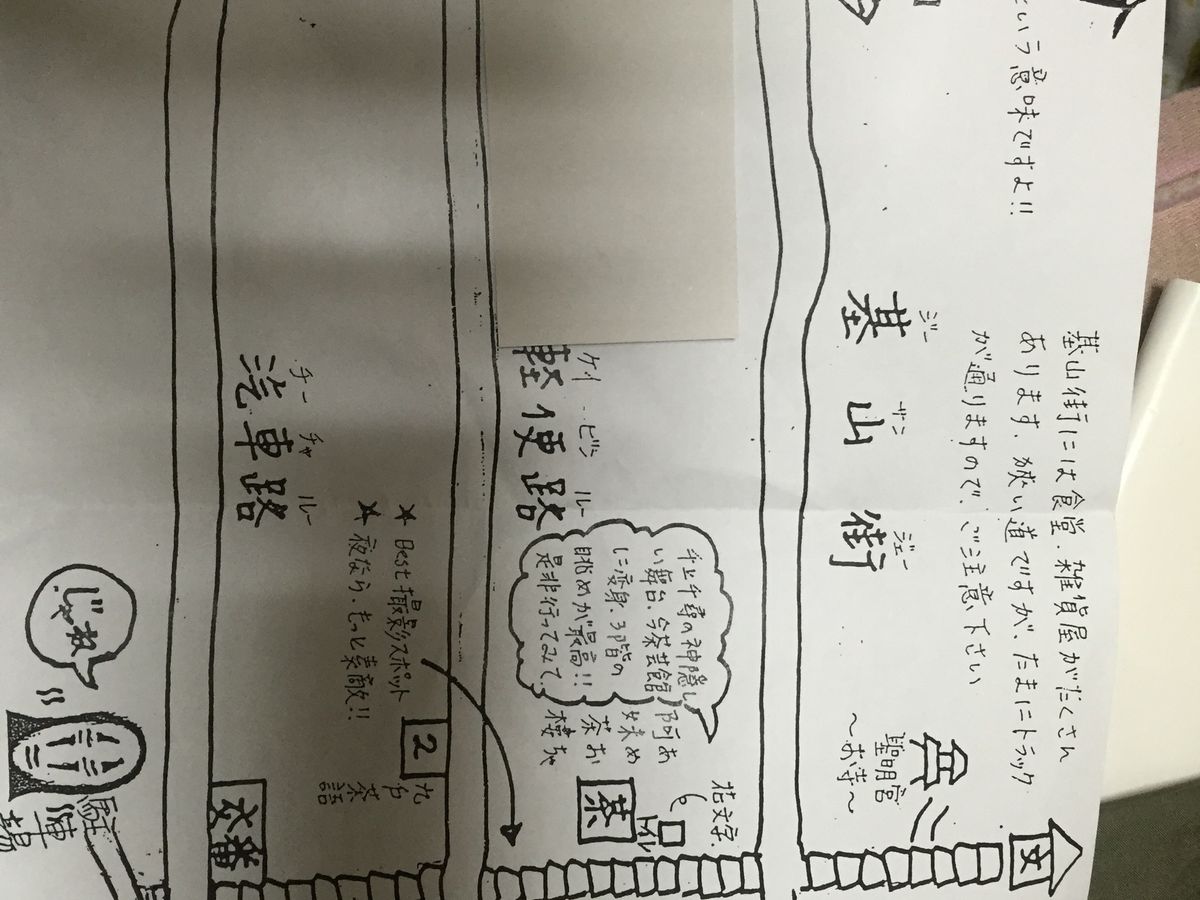 という意味ですよ!!
基山街には食堂、雑貨屋がたくさん
あります、狭い道ですが、たまにトラック
が通りますので、ご注意下さい
ジー サン ジェー
基山街
聖明宮
〜お寺〜
女
花文字
トイレ
茶
阿あ
妹め
茶お
樓ちゃ
千上千尋の神隠し
い舞台、今茶芸館
に変身、3階の
眺めが最高!!
是非行ってみて、
ケイ ビン ルー
輕便路
★Best撮影スポット
★夜なら、もっと素敵!!
2
九戸
茶語
チー チャ ルー
汽車路
交番
じゃね
駐車場